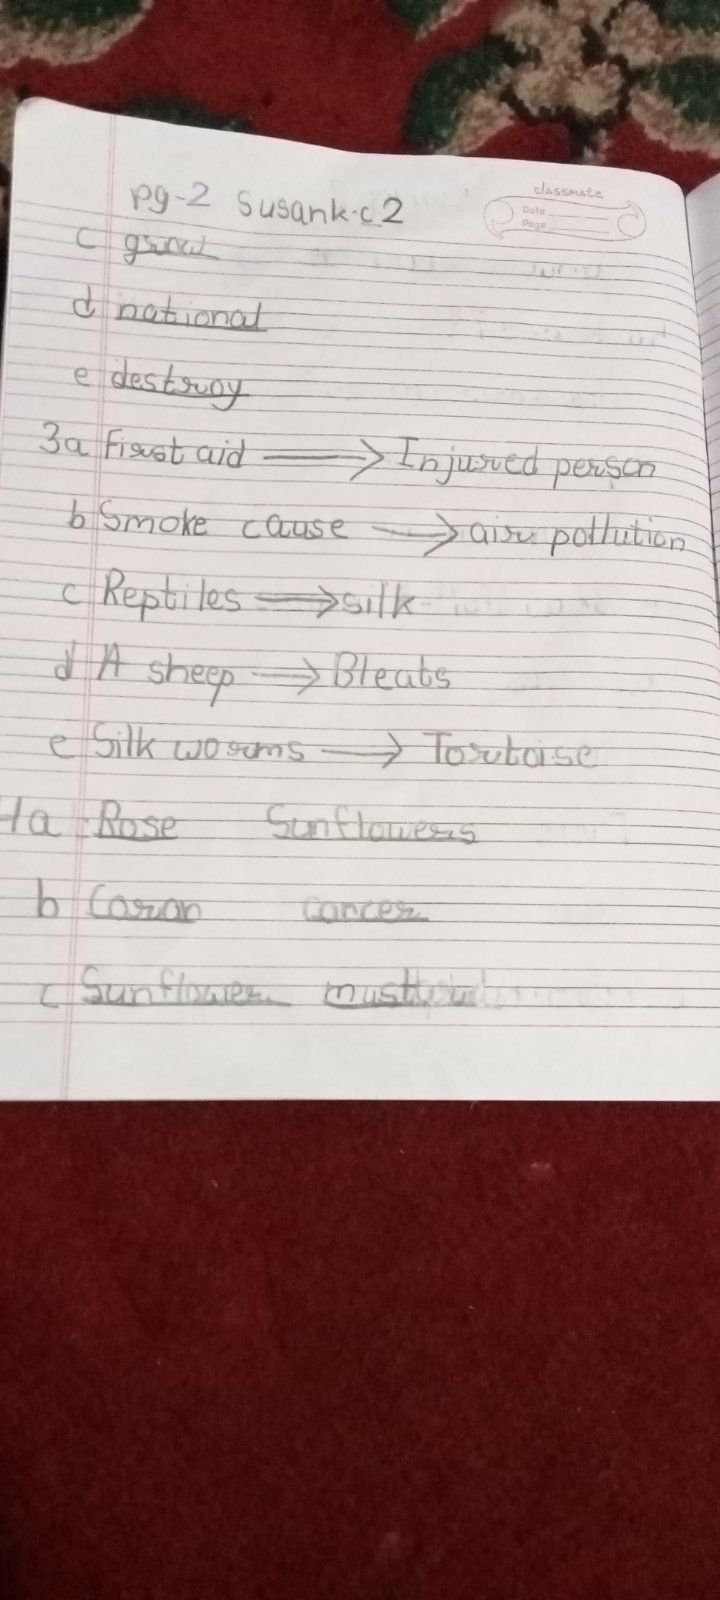 classmate
Date
Page
pg-2 Susank.c 2
c
d national
e destroy
3a First aid → Injured person
b Smoke cause → air pollution
c Reptiles → silk
d A sheep → Bleats
e Silk worms → Tortoise
4a Rose Sunflowers
b Corron cancer
c Sunflower